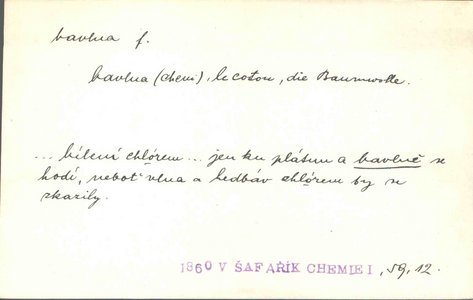 bavlna f.
bavlna (chem.), le coton, die Baumwolle.
... bílení chlórem ... jen ku plátnu a bavlně se
hodí, neboť vlna a hedbáv chlórem by se
zkazily.
1860 V ŠAFAŘÍK CHEMIE I, 59, 12.